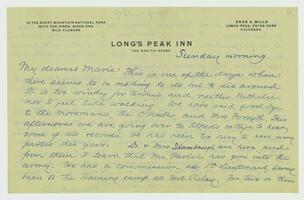 IN THE ROCKY MOUNTAIN NATIONAL PARK
WITH THE PINES, BIRDS AND
WILD FLOWERS
ENOS A. MILLS
LONGS PEAK, ESTES PARK
COLORADO
LONG'S PEAK INN
THE NON-TIP HOUSE
Sunday morning
My dearest Marie: This is one of the days where
there seems to be nothing to do but to sit around.
It is too windy for tennis and neither Nathalie
nor I feel like walking. We have said goodby
to the Movemans, the O'Neills, and Mrs Forsyth. This
afternoon we are going over to Alfreds cottage to hear
some of his records. He has been too busy to have any
parties this year. Dr. & Mrs Stambaugh are here and
from them I learn that Mr Parish has gone into the
army. He has a commission as 1st Lieutenant having
been to the training camp at Fort Riley. For two or three